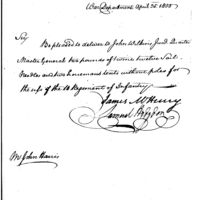 War Department April 25. 1800
Sir
Be pleased to deliver to John Wilkins Jun.r Quarter
Master General two pounds of twine twelve Sail
Needles and two horsemens tents without poles for
the use of the 10 Regiment of Infantry
James McHenry
Samuel Hodgdon
Mr John Harris